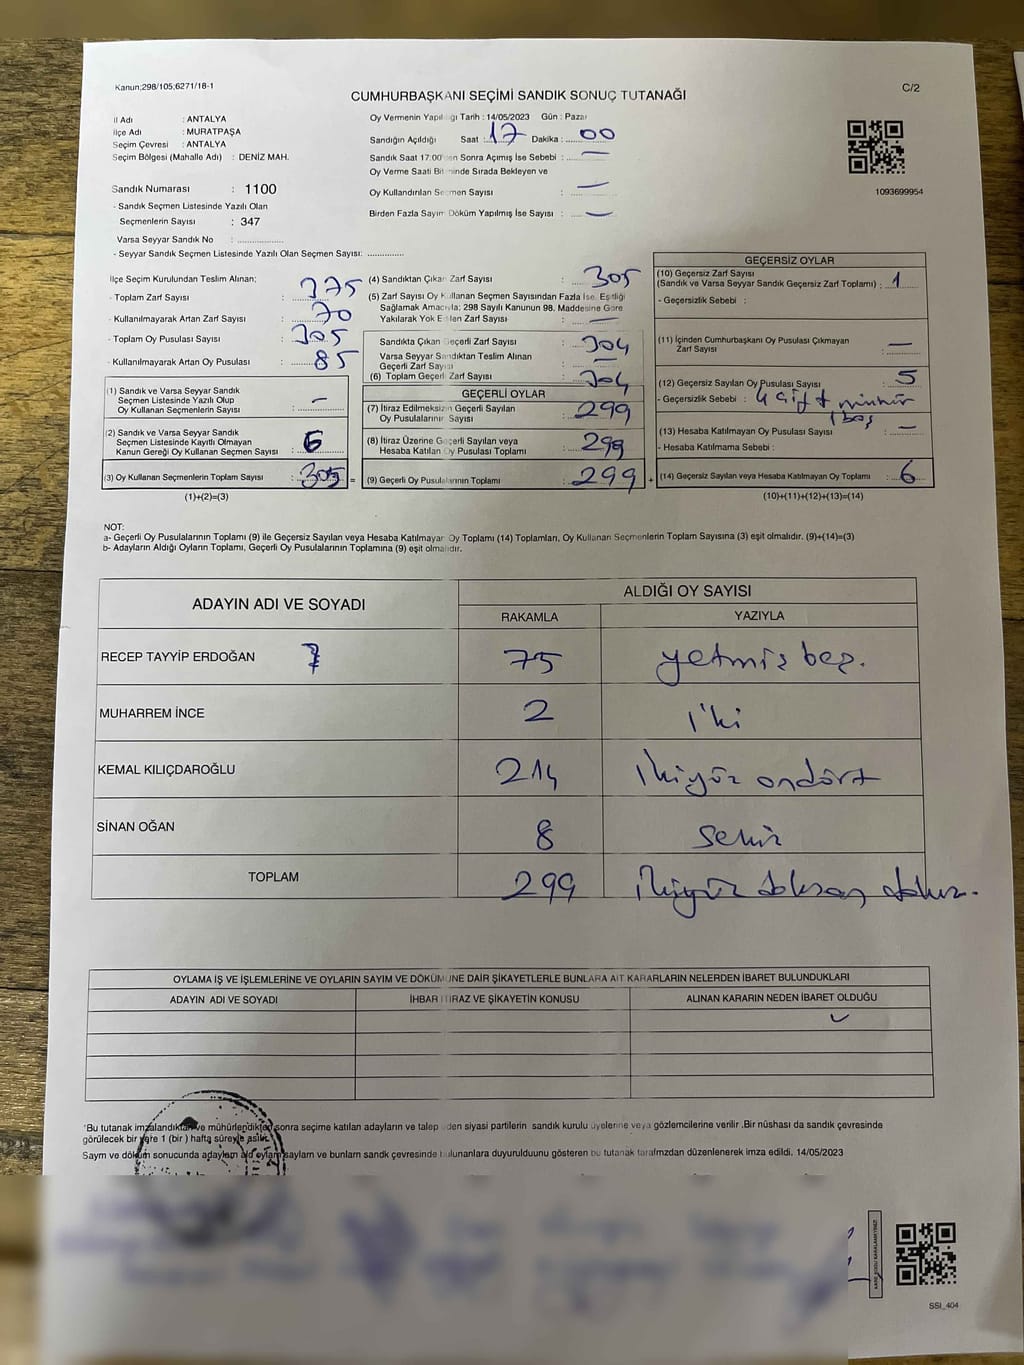 Kanun;298/105;6271/18-1
C/2
CUMHURBAŞKANI SEÇİMİ SANDIK SONUÇ TUTANAĞI
İl Adı : ANTALYA
İlçe Adı : MURATPAŞA
Seçim Çevresi : ANTALYA
Seçim Bölgesi (Mahalle Adı) : DENİZ MAH.
Sandık Numarası : 1100
- Sandık Seçmen Listesinde Yazılı Olan
Seçmenlerin Sayısı : 347
Varsa Seyyar Sandık No : ................
- Seyyar Sandık Seçmen Listesinde Yazılı Olan Seçmen Sayısı: ..............
Oy Vermenin Yapıldığı Tarih : 14/05/2023 Gün : Pazar
Sandığın Açıldığı Saat : 17 Dakika : 00
Sandık Saat 17:00'den Sonra Açımış İse Sebebi : —
Oy Verme Saati Bitiminde Sırada Bekleyen ve
Oy Kullandırılan Seçmen Sayısı : —
Birden Fazla Sayım Döküm Yapılmış İse Sayısı : —
1093699954
İlçe Seçim Kurulundan Teslim Alınan;
- Toplam Zarf Sayısı : 375
- Kullanılmayarak Artan Zarf Sayısı : 70
- Toplam Oy Pusulası Sayısı : 305
- Kullanılmayarak Artan Oy Pusulası : 85
(1) Sandık ve Varsa Seyyar Sandık
Seçmen Listesinde Yazılı Olup
Oy Kullanan Seçmenlerin Sayısı : —
(2) Sandık ve Varsa Seyyar Sandık
Seçmen Listesinde Kayıtlı Olmayan
Kanun Gereği Oy Kullanan Seçmen Sayısı : 6
(3) Oy Kullanan Seçmenlerin Toplam Sayısı : 305 =
(1)+(2)=(3)
(4) Sandıktan Çıkan Zarf Sayısı : 305
(5) Zarf Sayısı Oy Kullanan Seçmen Sayısından Fazla İse, Eşitliği
Sağlamak Amacıyla; 298 Sayılı Kanunun 98. Maddesine Göre
Yakılarak Yok Edilen Zarf Sayısı : —
Sandıkta Çıkan Geçerli Zarf Sayısı : 304
Varsa Seyyar Sandıktan Teslim Alınan
Geçerli Zarf Sayısı : —
(6) Toplam Geçerli Zarf Sayısı : 304
GEÇERLİ OYLAR
(7) İtiraz Edilmeksizin Geçerli Sayılan
Oy Pusulalarının Sayısı : 299
(8) İtiraz Üzerine Geçerli Sayılan veya
Hesaba Katılan Oy Pusulası Toplamı : 299
(9) Geçerli Oy Pusulalarının Toplamı : 299 +
GEÇERSİZ OYLAR
(10) Geçersiz Zarf Sayısı
(Sandık ve Varsa Seyyar Sandık Geçersiz Zarf Toplamı) : 1
- Geçersizlik Sebebi :
(11) İçinden Cumhurbaşkanı Oy Pusulası Çıkmayan
Zarf Sayısı : —
(12) Geçersiz Sayılan Oy Pusulası Sayısı : 5
- Geçersizlik Sebebi : 4 çift mühür
1 boş
(13) Hesaba Katılmayan Oy Pusulası Sayısı : —
- Hesaba Katılmama Sebebi :
(14) Geçersiz Sayılan veya Hesaba Katılmayan Oy Toplamı : 6
(10)+(11)+(12)+(13)=(14)
NOT:
a- Geçerli Oy Pusulalarının Toplamı (9) ile Geçersiz Sayılan veya Hesaba Katılmayan Oy Toplamı (14) Toplamları, Oy Kullanan Seçmenlerin Toplam Sayısına (3) eşit olmalıdır. (9)+(14)=(3)
b- Adayların Aldığı Oyların Toplamı, Geçerli Oy Pusulalarının Toplamına (9) eşit olmalıdır.
ADAYIN ADI VE SOYADI
ALDIĞI OY SAYISI
RAKAMLA YAZIYLA
RECEP TAYYİP ERDOĞAN 75 yetmiş beş.
MUHARREM İNCE 2 iki
KEMAL KILIÇDAROĞLU 214 ikiyüz ondört
SİNAN OĞAN 8 sekiz
TOPLAM 299 ikiyüz doksan dokuz.
OYLAMA İŞ VE İŞLEMLERİNE VE OYLARIN SAYIM VE DÖKÜMÜNE DAİR ŞİKAYETLERLE BUNLARA AİT KARARLARIN NELERDEN İBARET BULUNDUKLARI
ADAYIN ADI VE SOYADI İHBAR İTİRAZ VE ŞİKAYETİN KONUSU ALINAN KARARIN NEDEN İBARET OLDUĞU
*Bu tutanak imzalandıktan ve mühürlendikten sonra seçime katılan adayların ve talep eden siyasi partilerin sandık kurulu üyelerine veya gözlemcilerine verilir .Bir nüshası da sandık çevresinde
görülecek bir yere 1 (bir ) hafta süreyle asılır.
Sayım ve döküm sonucunda adayların aldığı oylarını sayıları ve bunların sandık çevresinde bulunanlara duyurulduunu gösteren bu tutanak tarafımzdan düzenlenerek imza edildi. 14/05/2023
SSI_404